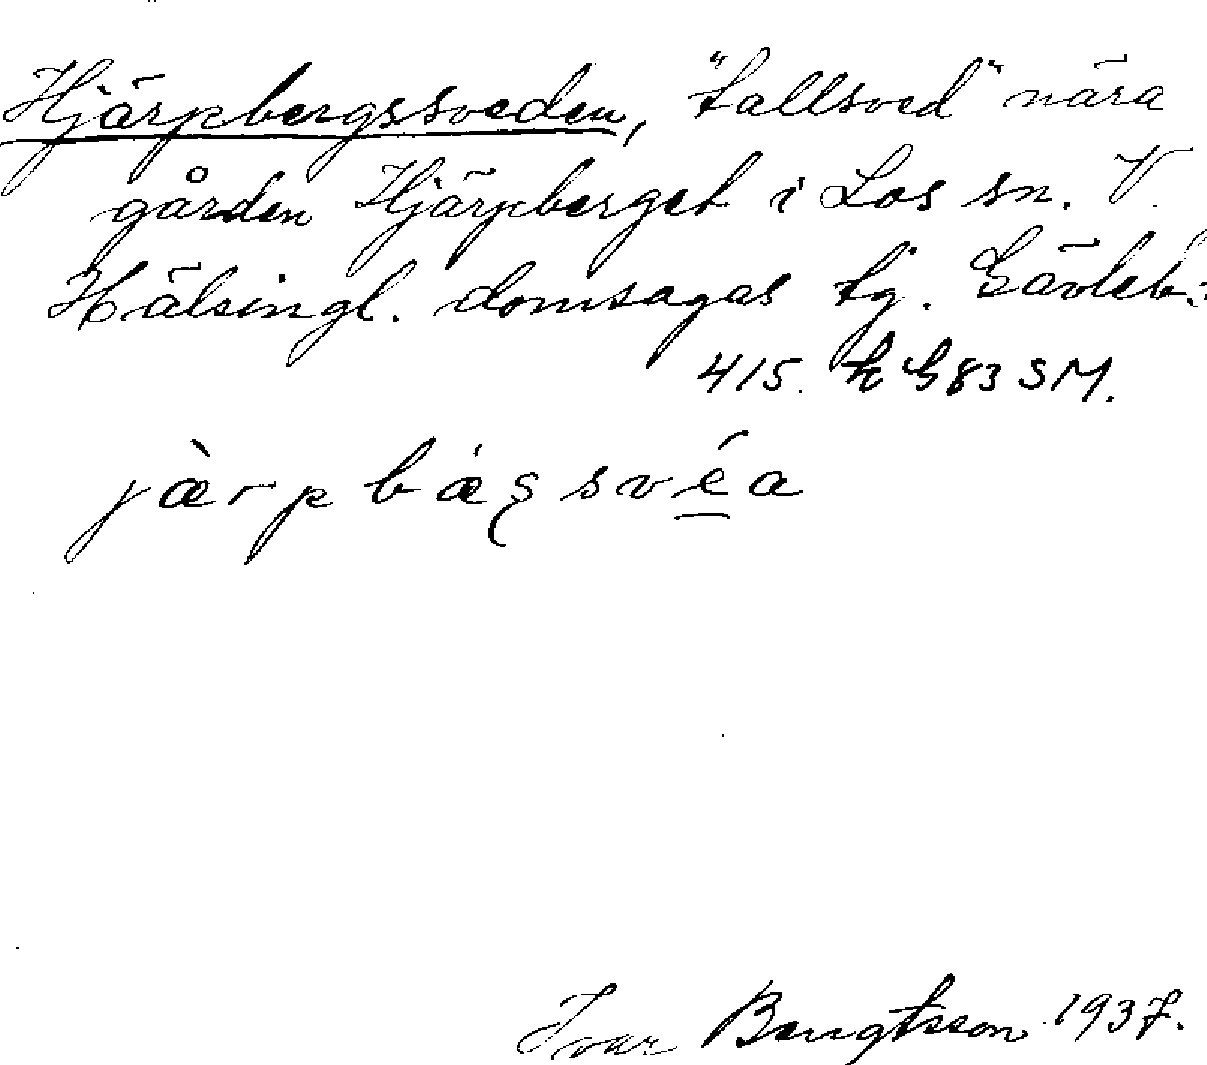 Hjärpbergssveden, "tallsved" nära
gården Hjärpberget i Los sn. V.
Hälsingl. domsagas tg. Gävleb:s
415. SM.
jàrpbágsvéa
Ivar Bengtsson 1937.